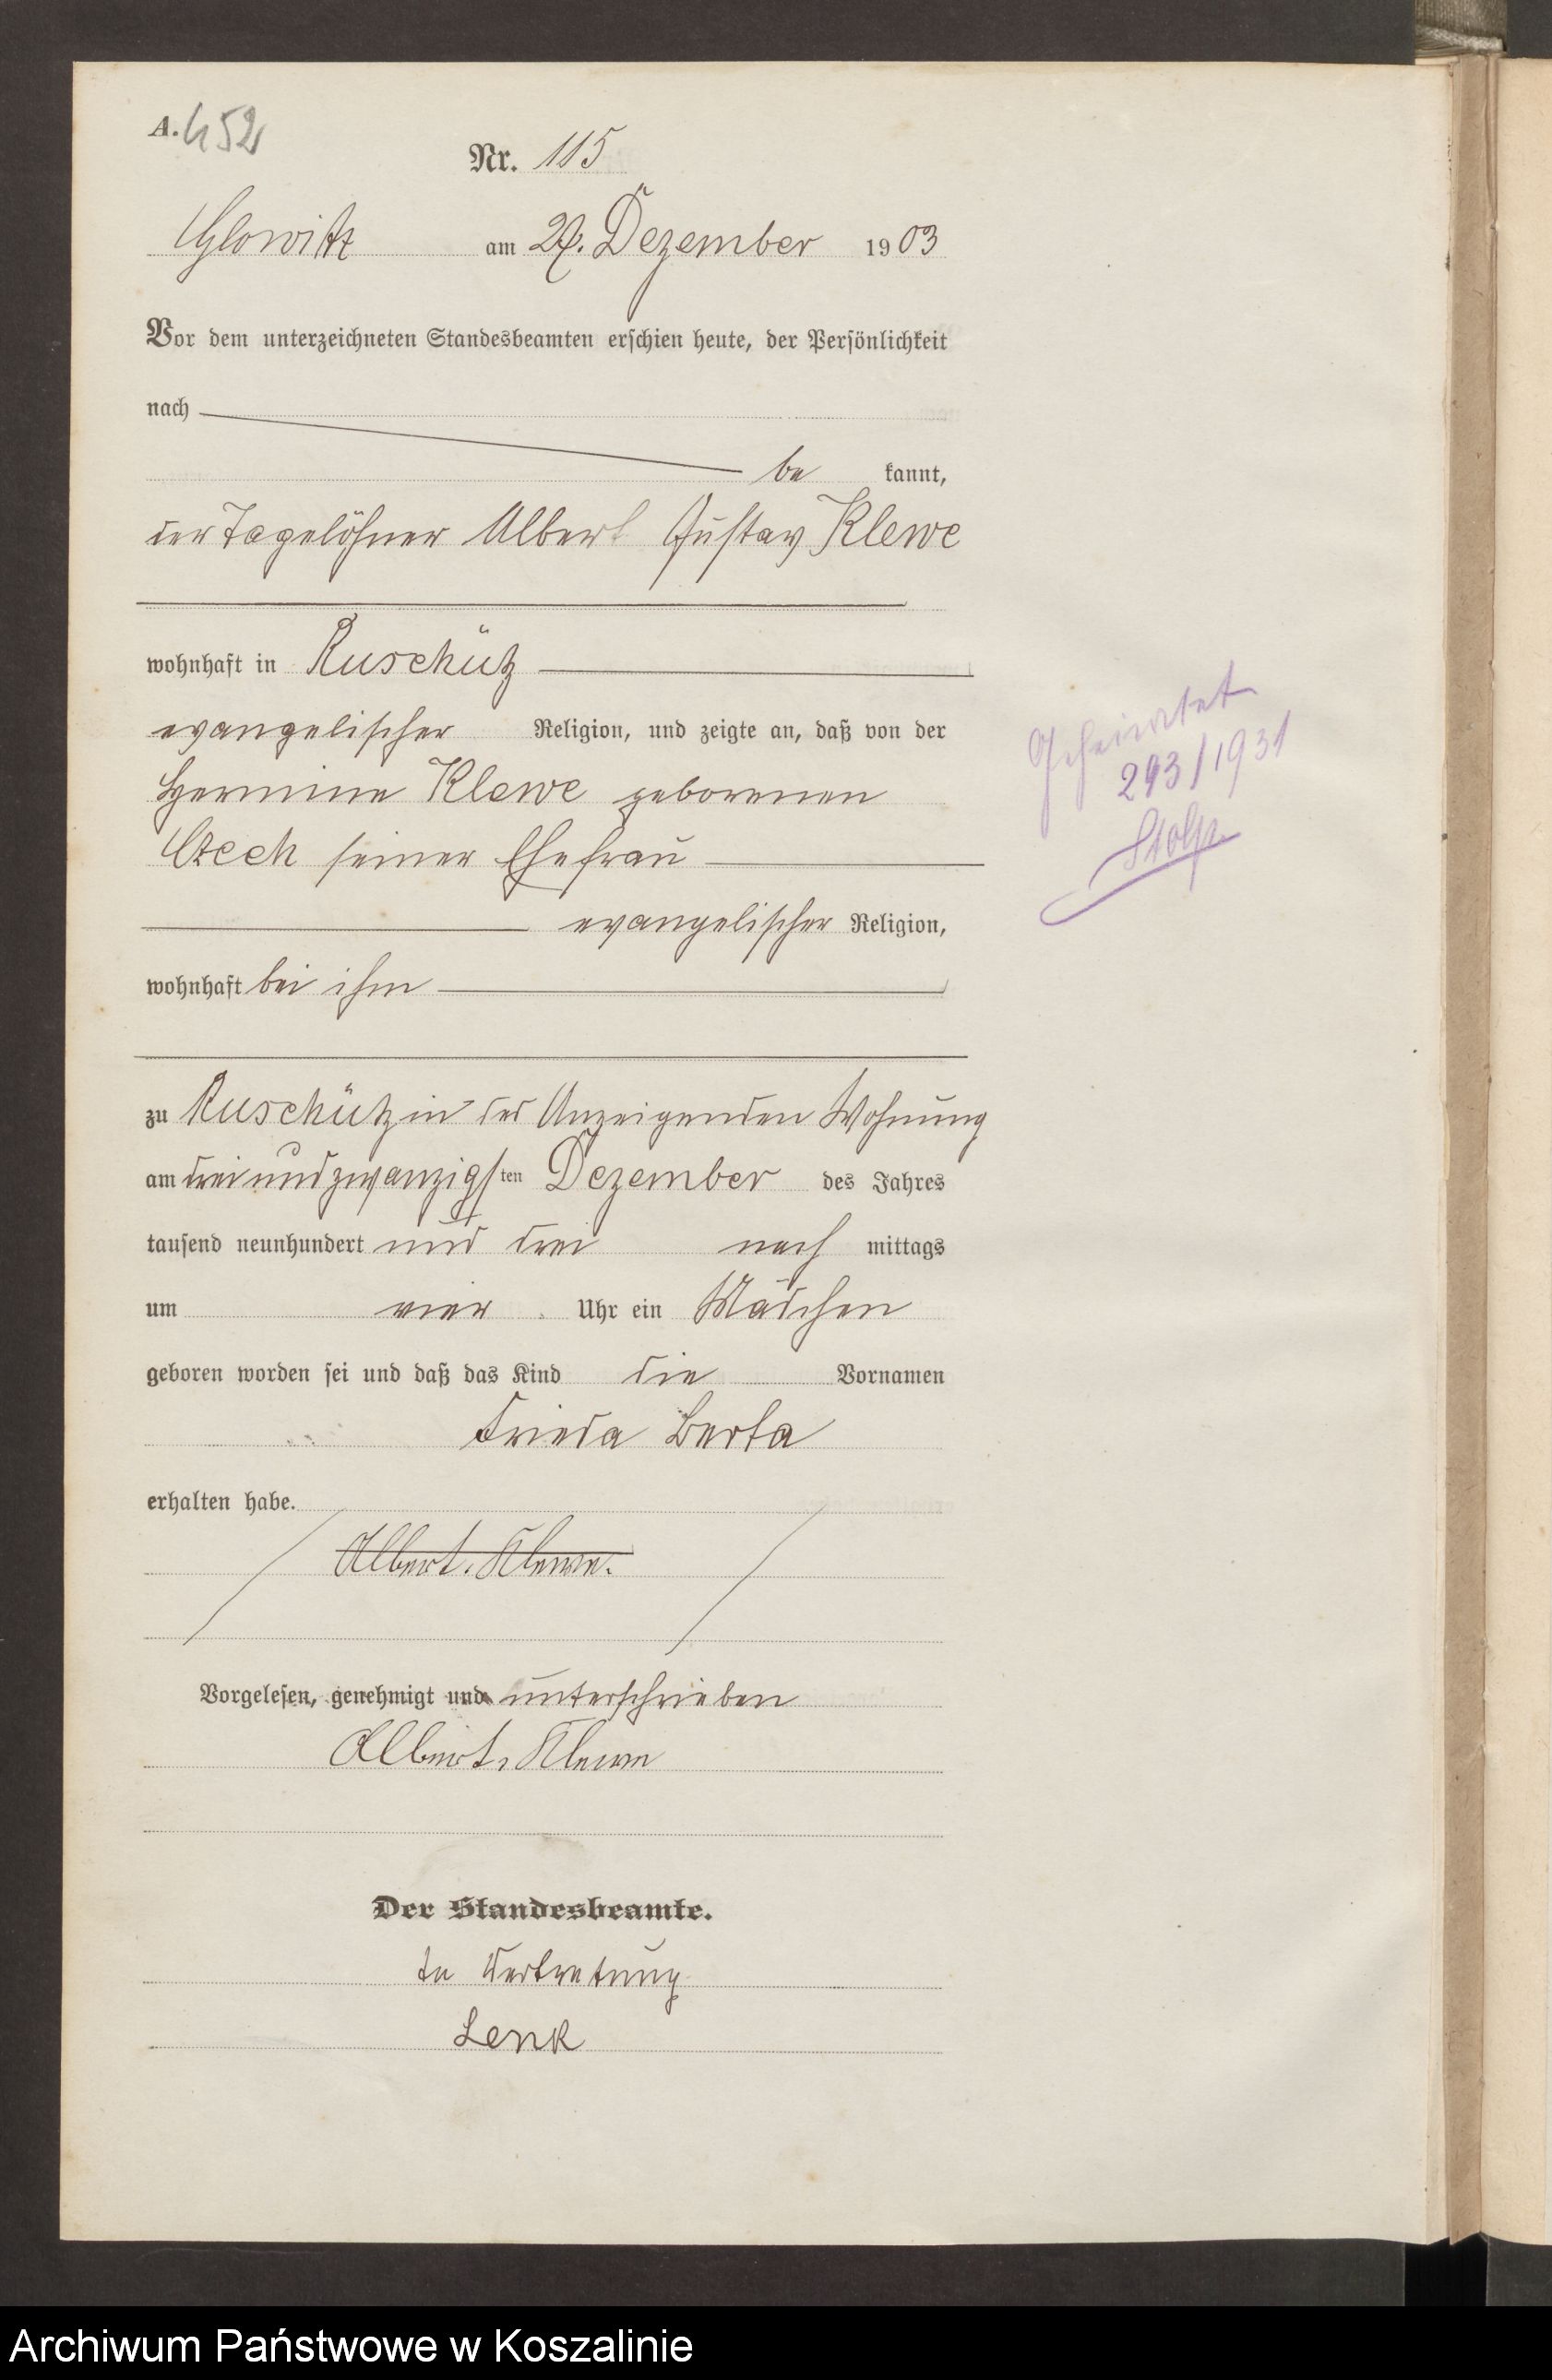 A. 452
Nr. 115
Glowitz am 29. Dezember 1903
Vor dem unterzeichneten Standesbeamten erschien heute, der Persönlichkeit
nach
be kannt,
der Tagelöhner Albert Gustav Klewe
wohnhaft in Ruschütz
evangelischer Religion, und zeigte an, daß von der
Hermine Klewe geborenen
Czech seiner Ehefrau
evangelischer Religion,
wohnhaft bei ihm
zu Ruschütz in des Anzeigenden Wohnung
am dreiundzwanzigsten Dezember des Jahres
tausend neunhundert und drei nach mittags
um vier Uhr ein Mädchen
geboren worden sei und daß das Kind die Vornamen
Frieda Berta
erhalten habe.
Albert. Klewe.
Vorgelesen, genehmigt und unterschrieben
Albert. Klewe
Der Standesbeamte.
In Vertretung
Lenk
Geheiratet
293/1931
Stolp
Archiwum Państwowe w Koszalinie